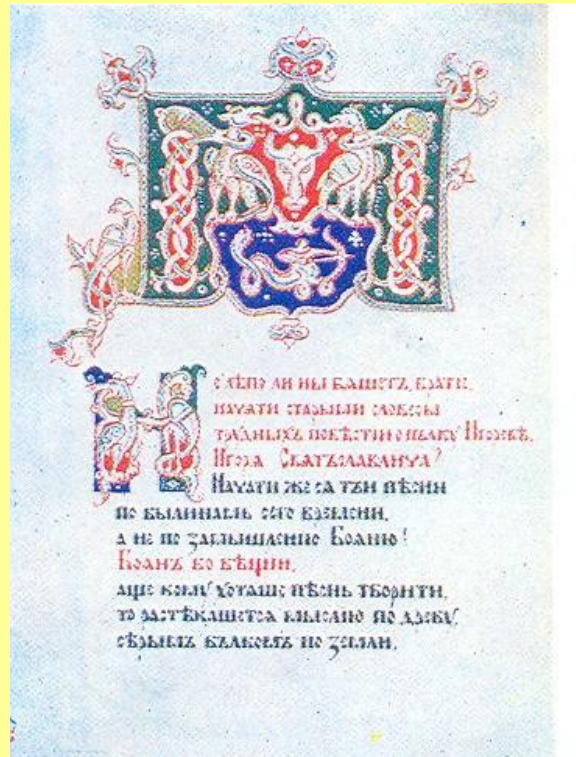 Не лѣпо ли ны бяшетъ, братїе,
начяти старыми словесы
трудныхъ повѣстїи о пълку Игоревѣ,
Игоря Святъславлича?
Начати же ся тъи пѣсни
по былинамь сего времени,
а не по замышленїю Бояню!
Боянъ бо вѣщии,
аще кому хотяше пѣснь творити,
то растѣкашется мыслию по древу,
сѣрымъ вълкомъ по земли,